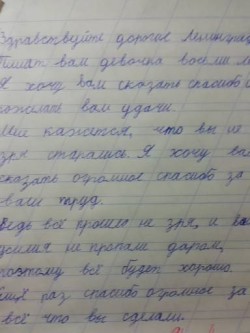 Здравствуйте дорогие Ленинград
Пишет вам девочка восьми ле
Я хочу вам сказать спасибо и
пожелать вам удачи.
Мне кажется, что вы не
зря старались. Я хочу вам
сказать огромное спасибо за
ваш труд.
Ведь всё прошло не зря, и ва
усилия не пропали даром,
поэтому всё будет хорошо.
Ещё раз спасибо огромное за
всё что вы сделали.